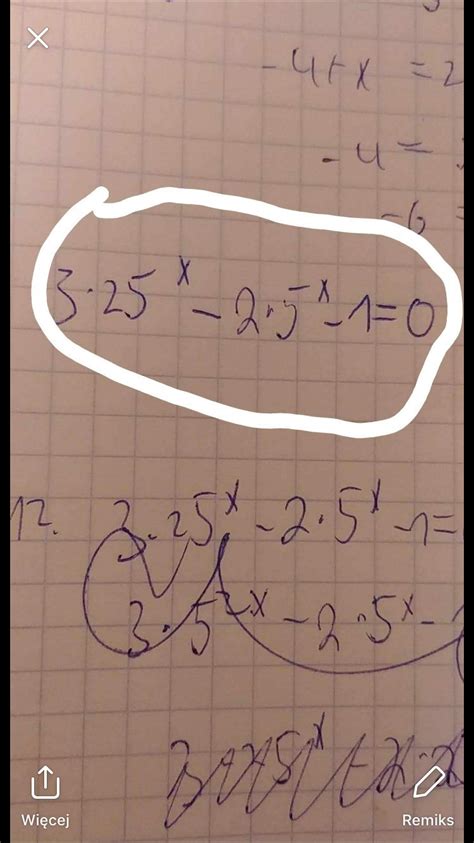 -4+x = 2
-4 =
-6 =
3·25^x - 2·5^x - 1 = 0
12. 3·25^x - 2·5^x - 1 =
3·5^2·x - 2·5^x -
Więcej
Remiks